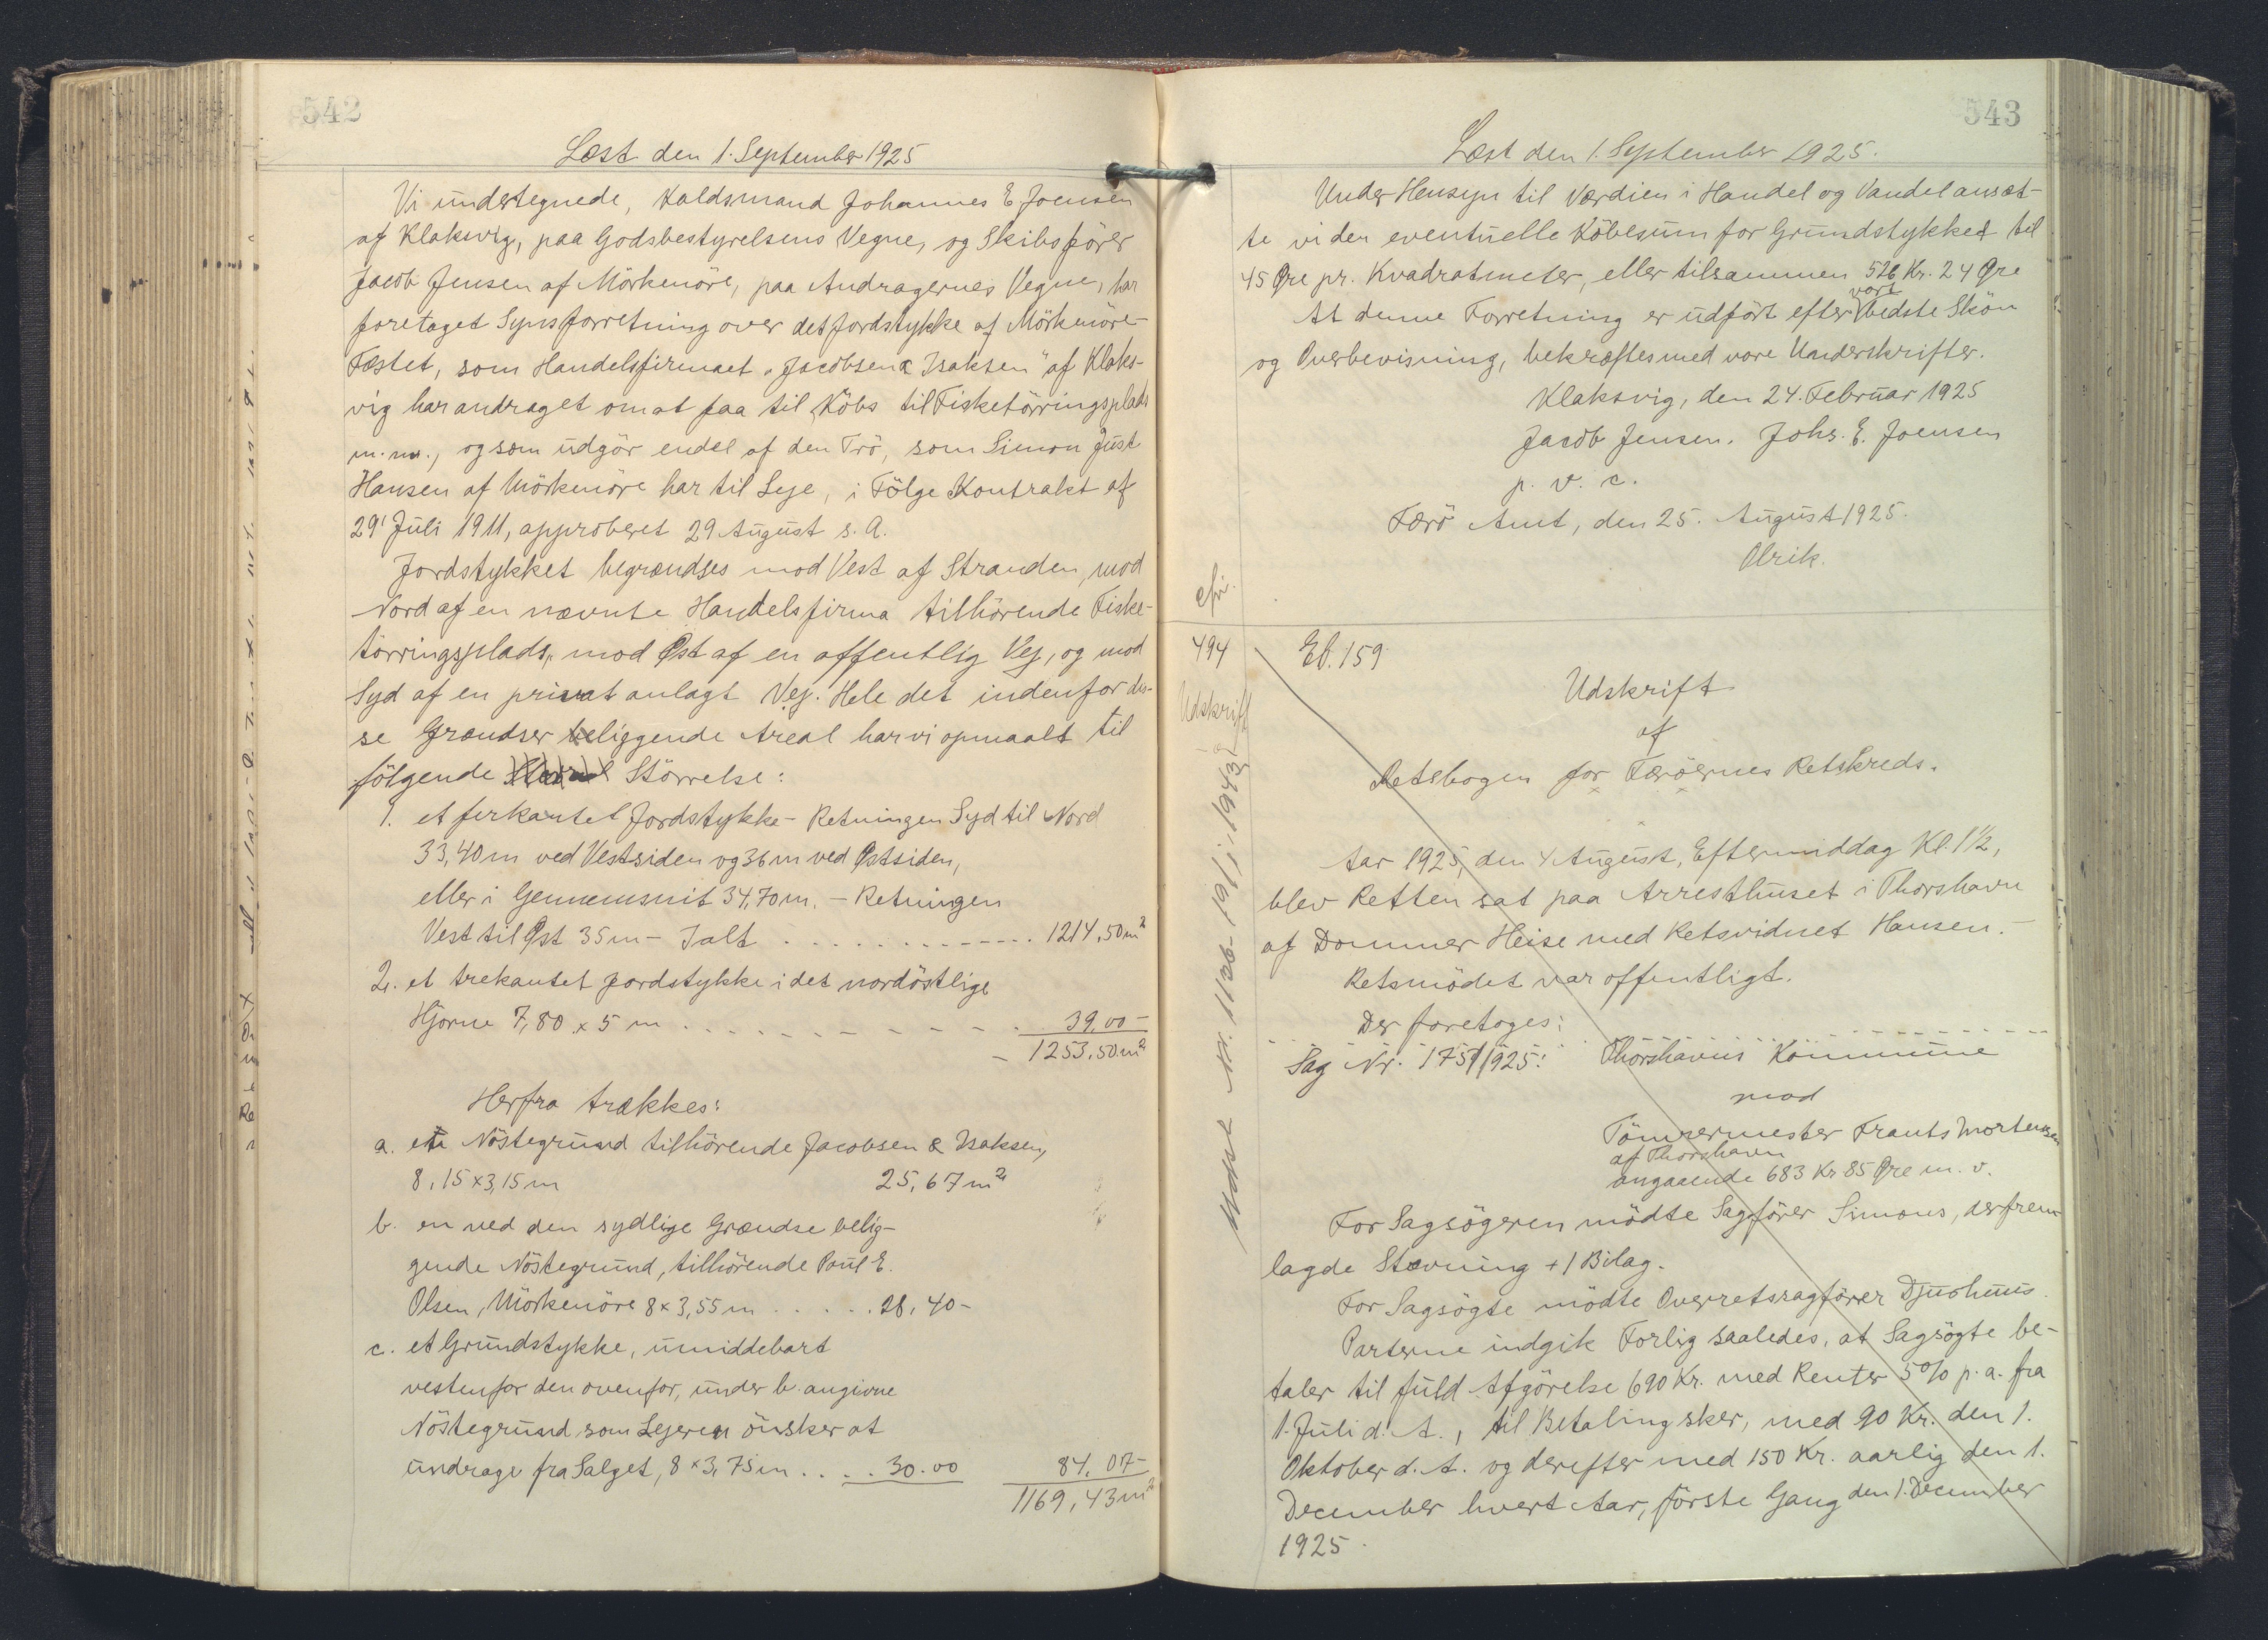 542
Læst den 1. September 1925
Vi undertegnede, Kaldsmand Johannes E Joensen
af Klaksvig, paa Godsbestyrelsens Vegne, og Skibsfører
Jacob Jensen af Mörkenöre, paa Andragernes Vegne, har
foretaget Synsforretning over det Jordstykke af Mörkenöre-
Fæstet, som Handelsfirmaet „Jacobsen & Isaksen" af Klaks-
vig har andraget om at faa til Köbs til Fisketörringsplads
m.m., og som udgör endel af den Trö, som Simon Just
Hansen af Mörkenöre har til Leje, i Fölge Kontrakt af
29' Juli 1911, approberet 29 August s. A.
Jordstykket begrændses mod Vest af Stranden, mod
Nord af en nævnte Handelsfirma tilhörende Fiske-
törringsplads, mod Øst af en offentlig Vej, og mod
Syd af en privat anlagt Vej. Hele det indenfor dis-
se Grændser beliggende Areal har vi opmaalt til
fölgende Störrelse:
1. et firkantet Jordstykke - Retningen Syd til Nord
33,40 m ved Vestsiden og 36 m ved Østsiden,
eller i Gennemsnit 34,70 m. - Retningen
Vest til Øst 35 m - Ialt . . . . . . . . . . . . . 1214,50 m²
2. et trekantet Jordstykke i det nordöstlige
Hjörne 7,80 x 5 m . . . . . . . . . . . 39,00 -
1253,50 m²
Herfra trækkes:
a. en Nöstegrund tilhörende Jacobsen & Isaksen,
8,15 x 3,15 m 25,67 m²
b. en ved den sydlige Grændse belig-
gende Nöstegrund, tilhörende Poul E.
Olsen, Mörkenöre 8 x 3,55 m . . . . . 28,40 -
c. et Grundstykke, umiddebart
vestenfor den ovenfor, under b. angivne
Nöstegrund, som Lejeren önsker at
undrage fra Salget, 8 x 3,75 m . . . . 30.00 84,07 -
1169,43 m²
543
Læst den 1. September 1925.
Under Hensyn til Værdien i Handel og Vandel ansæt-
te vi den eventuelle Köbesum for Grundstykket til
45 Øre pr. Kvadratmeter, eller tilsammen 526 Kr. 24 Øre
At denne Forretning er udfört efter vort bedste Skön
og Overbevisning, bekræftes med vore Underskrifter.
Klaksvig, den 24. Februar 1925
Jacob Jensen. Johs. E. Joensen
p. v. c.
Færö Amt, den 25. August 1925.
Olrik.
494
Udskrift
Eb. 159
Udskrift
af
Retsbogen for Færöernes Retskreds.
Aar 1925, den 4 August, Eftermiddag Kl. 1½,
blev Retten sat paa Arresthuset i Thorshavn
af Dommer Heise med Retsvidnet Hansen.
Retsmödet var offentligt.
Der foretoges:
Sag Nr. 175/1925: Thorshavns Kommune
mod
Tömrermester Frants Mortensen
af Thorshavn
angaaende 683 Kr 85 Øre m. v.
For Sagsögeren mödte Sagförer Simons, der frem-
lagde Stævning + 1 Bilag.
For Sagsögte mödte Overretssagförer Djurhuus.
Parterne indgik Forlig saaledes, at Sagsögte be-
taler til fuld Afgörelse 690 Kr. med Renter 5% p. a. fra
1. Juli d. A., til Betaling sker, med 90 Kr. den 1.
Oktober d. A. og derefter med 150 Kr. aarlig den 1.
December hvert Aar, förste Gang den 1. December
1925.